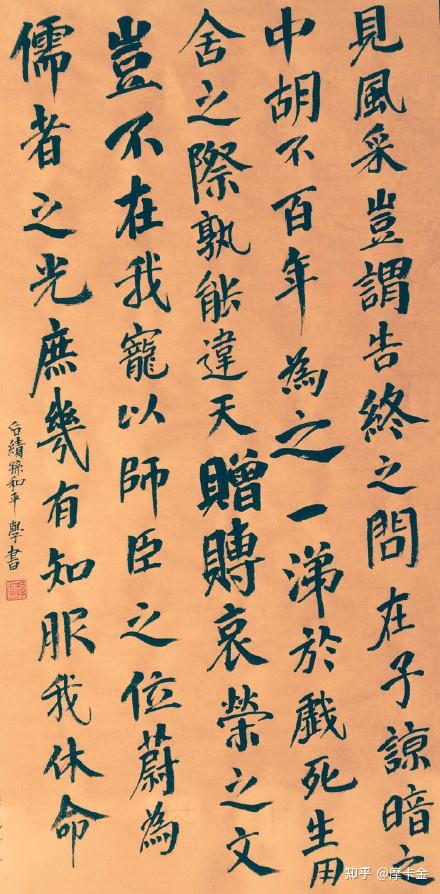 見風采豈謂告終之問在子諒暗之
中胡不百年為之一涕於戲死生用
舍之際孰能違天贈賻哀榮之文
豈不在我寵以師臣之位蔚為
儒者之光庶幾有知服我休命
績孫和平 學書
知乎 @摩卡金